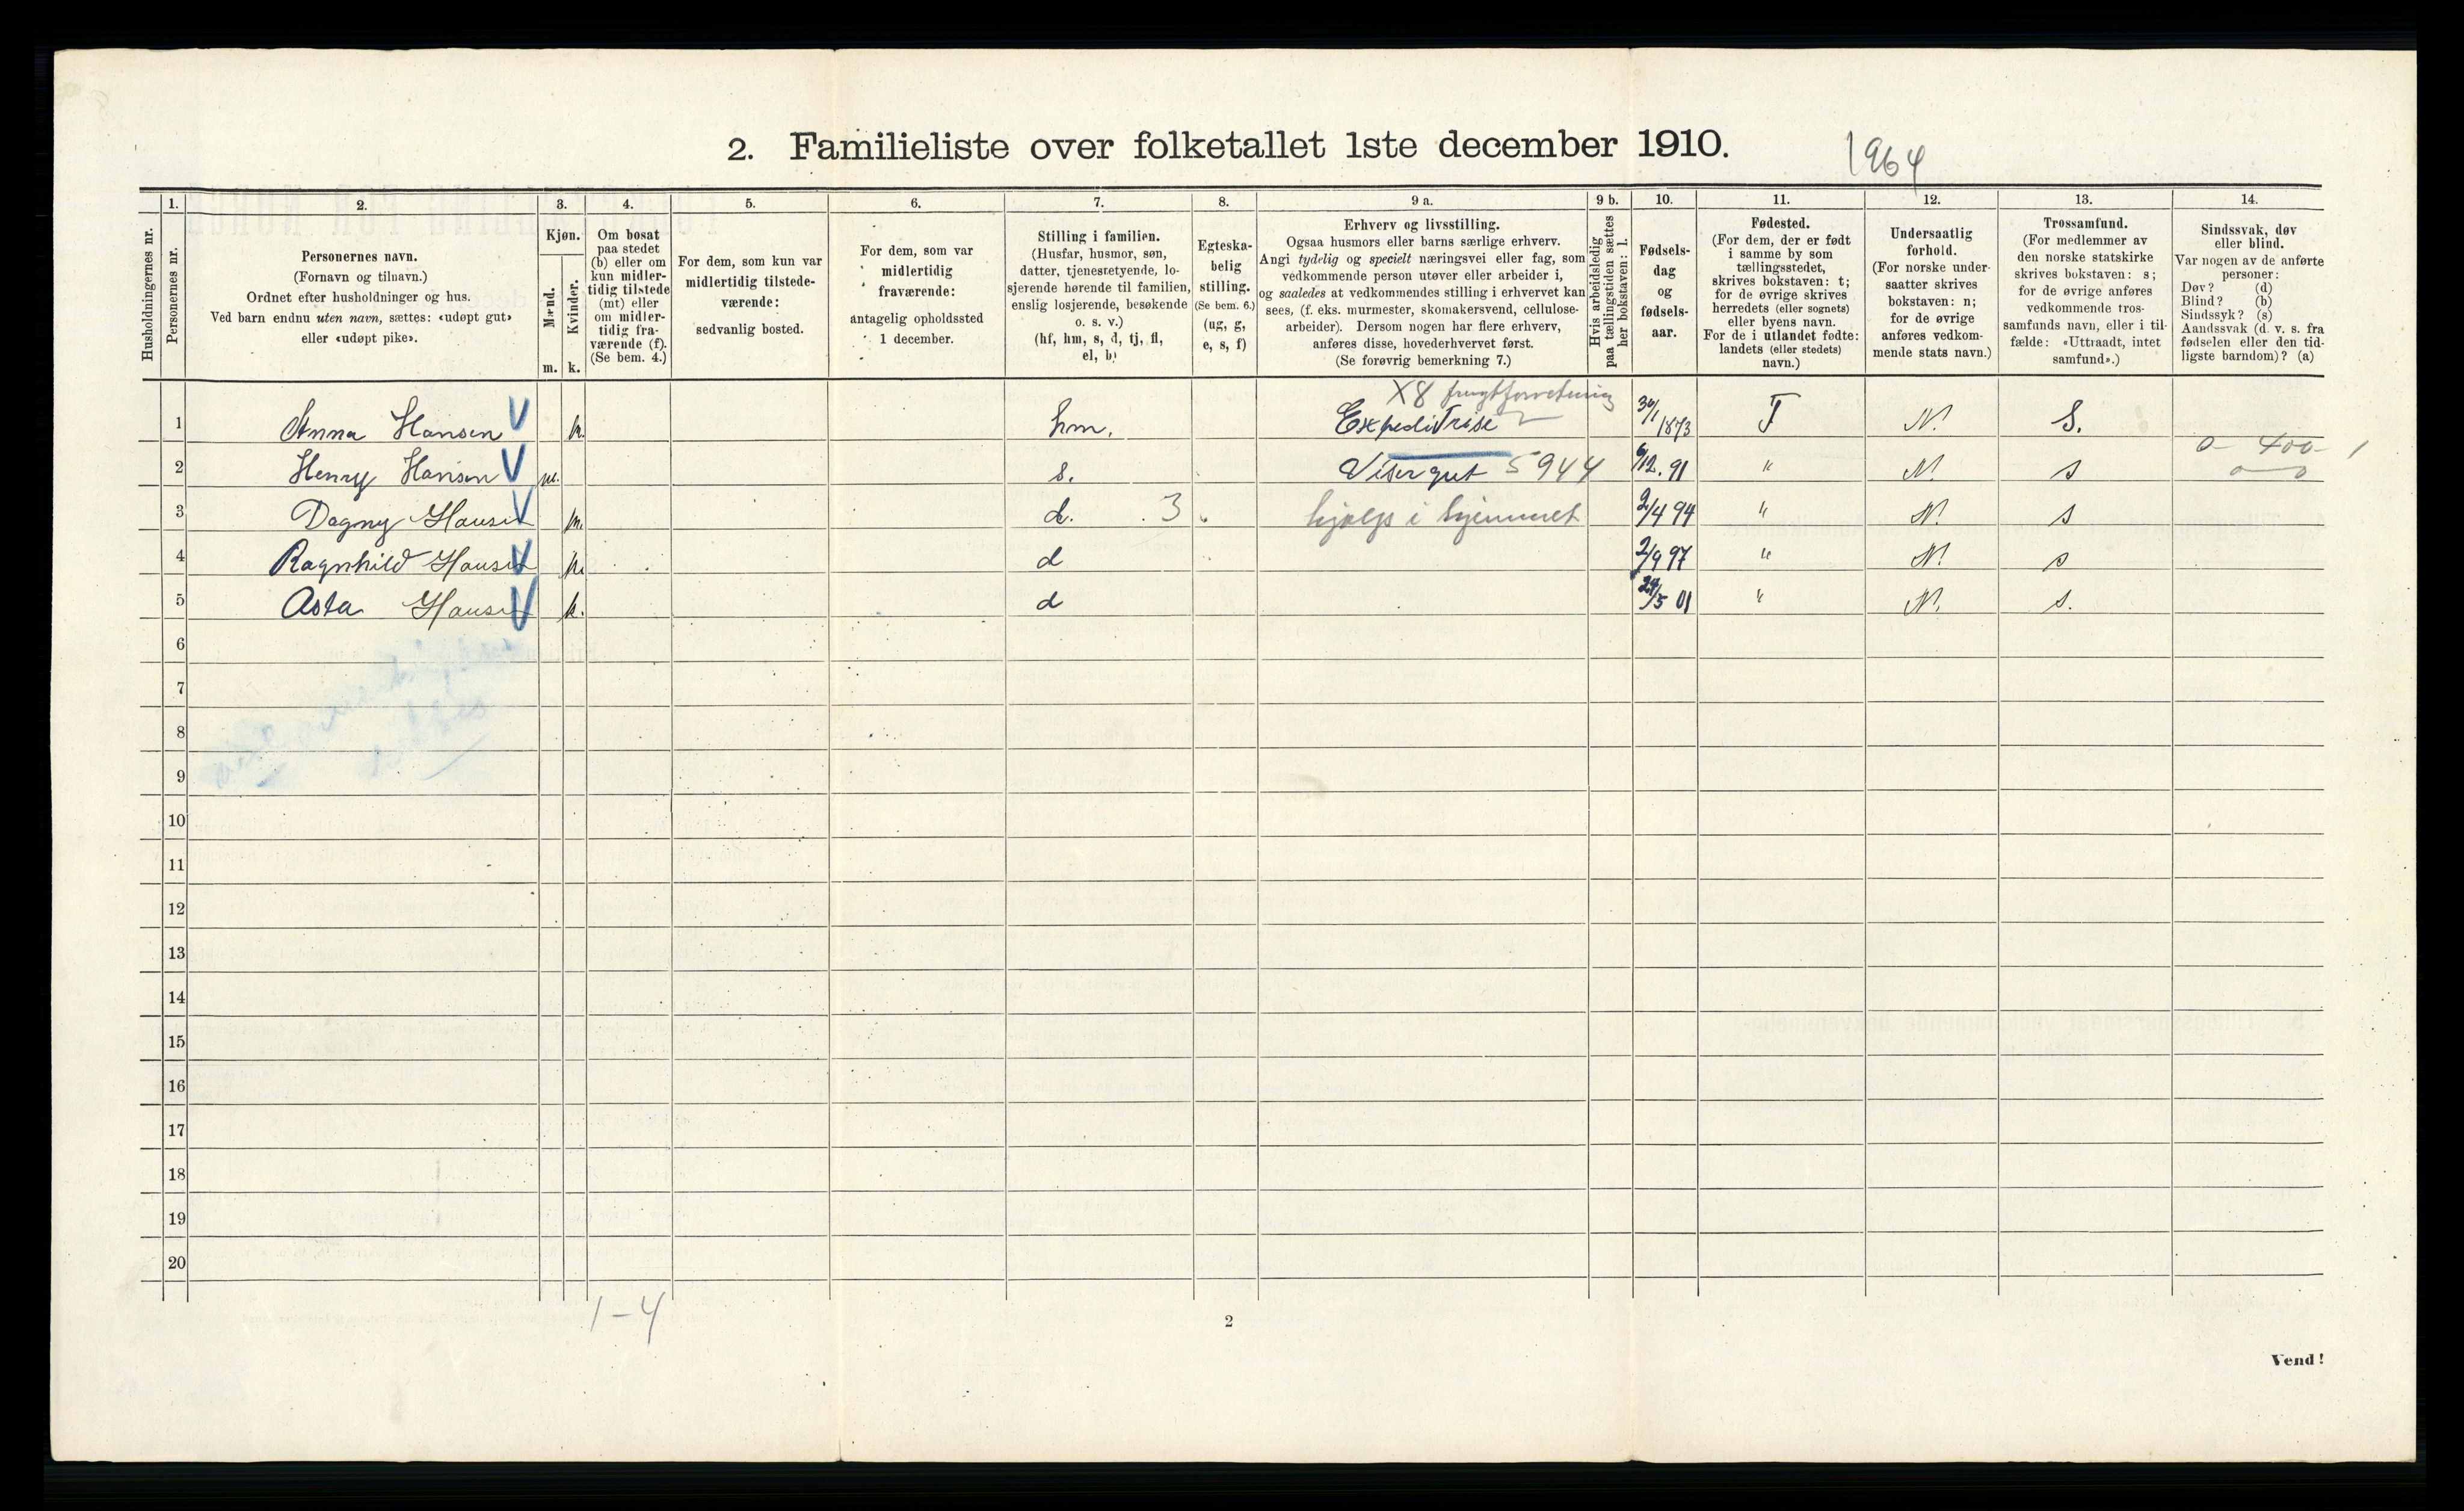 2. Familieliste over folketallet 1ste december 1910.
1964
Husholdningernes nr.
1.
Personernes nr.
2.
Personernes navn.
(Fornavn og tilnavn.)
Ordnet efter husholdninger og hus.
Ved barn endnu uten navn, sættes: «udøpt gut»
eller «udøpt pike».
3.
Kjøn.
Mænd.
Kvinder.
m. k.
4.
Om bosat
paa stedet
(b) eller om
kun midler-
tidig tilstede
(mt) eller
om midler-
tidig fra-
værende (f).
(Se bem. 4.)
5.
For dem, som kun var
midlertidig tilstede-
værende:
sedvanlig bosted.
6.
For dem, som var
midlertidig
fraværende:
antagelig opholdssted
1 december.
7.
Stilling i familien.
(Husfar, husmor, søn,
datter, tjenestetyende, lo-
sjerende hørende til familien,
enslig losjerende, besøkende
o. s. v.)
(hf, hm, s, d, tj, fl,
el, b)
8.
Egteska-
belig
stilling.
(Se bem. 6.)
(ug, g,
e, s, f)
9 a.
Erhverv og livsstilling.
Ogsaa husmors eller barns særlige erhverv.
Angi tydelig og specielt næringsvei eller fag, som
vedkommende person utøver eller arbeider i,
og saaledes at vedkommendes stilling i erhvervet kan
sees, (f. eks. murmester, skomakersvend, cellulose-
arbeider). Dersom nogen har flere erhverv,
anføres disse, hovederhvervet først.
(Se forøvrig bemerkning 7.)
9 b.
Hvis arbeidsledig
paa tællingstiden sættes
her bokstaven: l.
10.
Fødsels-
dag
og
fødsels-
aar.
11.
Fødested.
(For dem, der er født
i samme by som
tællingsstedet,
skrives bokstaven: t;
for de øvrige skrives
herredets (eller sognets)
eller byens navn.
For de i utlandet fødte:
landets (eller stedets)
navn.)
12.
Undersaatlig
forhold.
(For norske under-
saatter skrives
bokstaven: n;
for de øvrige
anføres vedkom-
mende stats navn.)
13.
Trossamfund.
(For medlemmer av
den norske statskirke
skrives bokstaven: s;
for de øvrige anføres
vedkommende tros-
samfunds navn, eller i til-
fælde: «Uttraadt, intet
samfund».)
14.
Sindssvak, døv
eller blind.
Var nogen av de anførte
personer:
Døv? (d)
Blind? (b)
Sindssyk? (s)
Aandssvak (d. v. s. fra
fødselen eller den tid-
ligste barndom)? (a)
X8 frugtforretning
1 Anna Hansen V k. hm. Expeditrise 30/1 1873 T N. S.
0 400-
2 Henry Hansen V m. s. Visergut 5944 6/12. 91 " N. s 0—0
3 Dagny Hansen V k. d. 3 hjælp i hjemmet 2/4 94 " N. s
4 Ragnhild Hansen V k. d 2/9 97 " N. s
5 Asta Hansen V k. d 24/5 01 " N. s.
6
7
8
9
10
11
12
13
14
15
16
17
18
19
20
1-4
2
Vend!